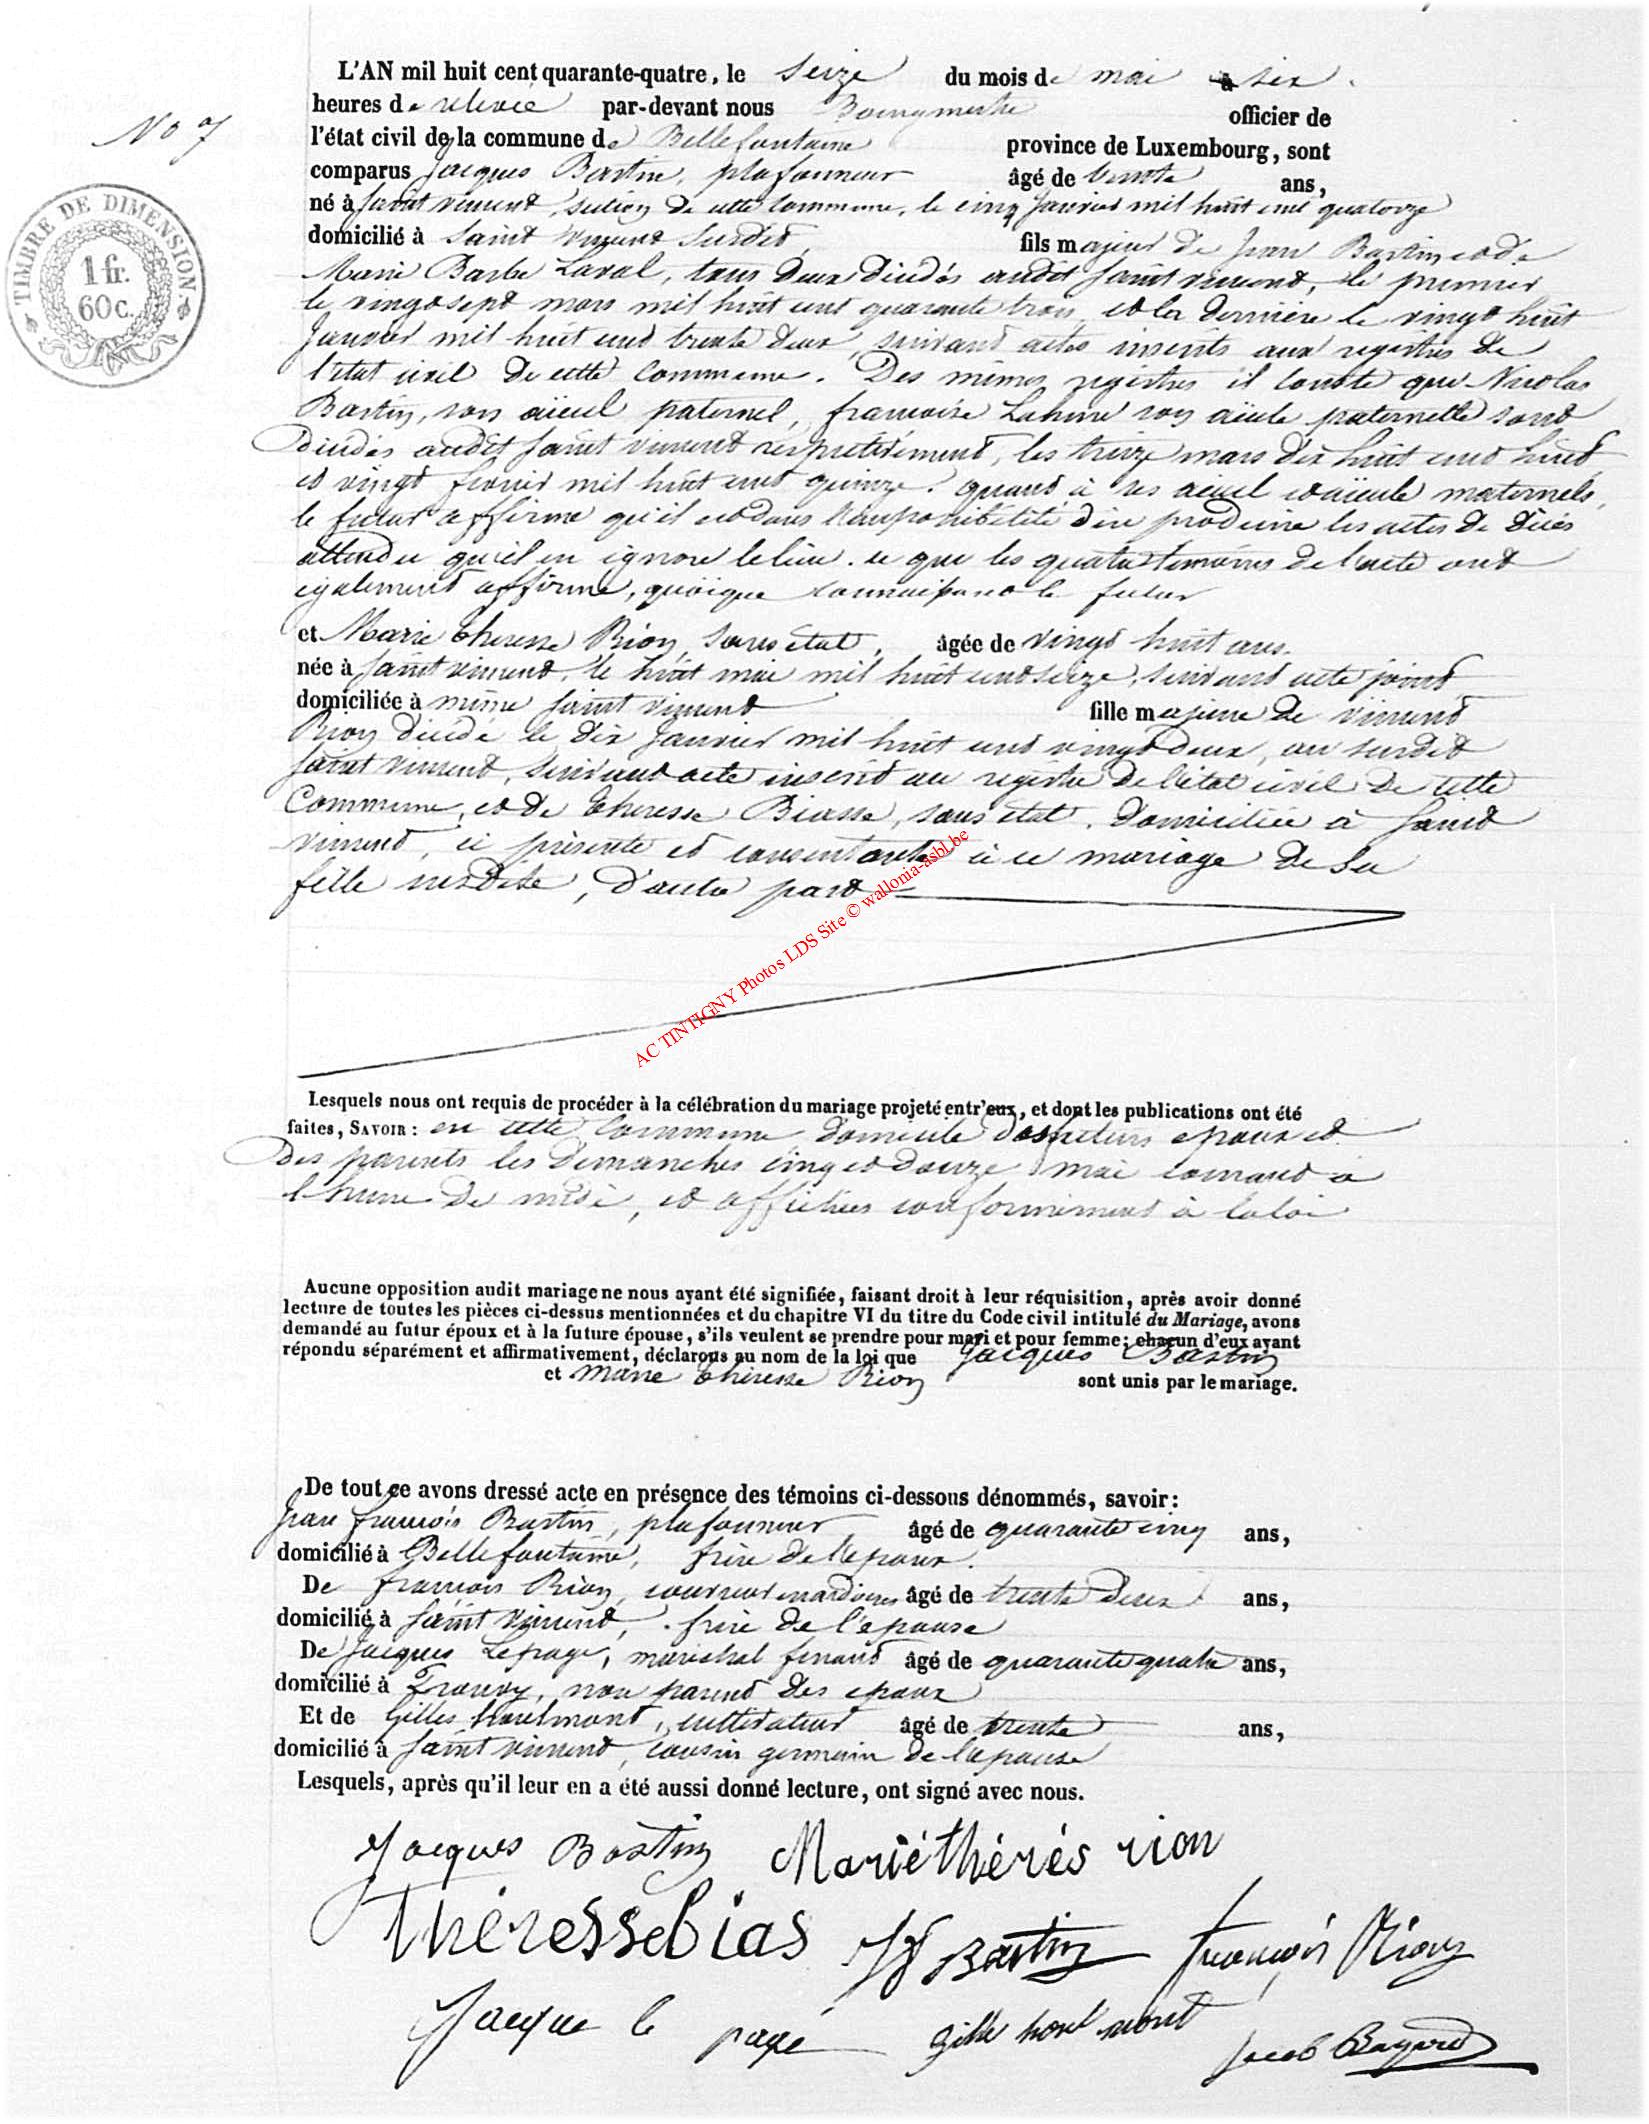 L'AN mil huit cent quarante-quatre, le seize du mois de mai à six
heures de relevée par-devant nous Bourgmestre officier de
No 7
l'état civil de la commune de Bellefontaine province de Luxembourg, sont
comparus Jacques Bastin, plafonneur âgé de trente ans,
né à Saint vincent, section de cette commune, le cinq Janvier mil huit cent quatorze
domicilié à Saint Vincent susdit, fils majeur de Jean Bastin et de
Marie Barbe Laval, tous deux décédés audit Saint vincent, le premier
le vingt sept mars mil huit cent quarante trois et la dernière le vingt huit
Janvier mil huit cent trente deux, suivant actes inscrits aux registres de
l'état civil de cette commune. Des mêmes registres il conste que Nicolas
Bastin, son aïeul paternel, francoise Lahure son aïeule paternelle sont
décédés audit Saint vincent respectivement, les treize mars dix huit cent huit
et vingt fevrier mil huit cent quinze. quant à ses aeuel et aïeule maternels,
le futur affirme qu'il est dans l'impossibilité d'en produire les actes de décès
attendu qu'il en ignore le lieu. ce que les quatre témoins de l'acte ont
également affirmé, quoique connaissant le futur
et Marie Theresse Rion, sans état, âgée de vingt huit ans.
née à Saint vincent, le huit mai mil huit cent seize, suivant acte joint
domiciliée à même Saint vincent fille majeure de vincent
Rion décédé le dix Janvier mil huit cent vingt deux, au susdit
Saint vincent, suivant acte inscrit au registre de l'état civil de cette
Commune, et de Theresse Biasse, sans état, domiciliée à Saint
vincent, ci présente et consentante à ce mariage de sa
fille susdite, d'autre part
AC TINTIGNY Photos LDS Site © wallonia-asbl.be
TIMBRE DE DIMENSION.
1 fr.
60 c.
Lesquels nous ont requis de procéder à la célébration du mariage projeté entr'eux, et dont les publications ont été
faites, SAVOIR : en cette Commune domicile des futurs epoux et
des parents les dimanches cinq et douze mai courant à
l'heure de midi, et affichées conformément à la loi
Aucune opposition audit mariage ne nous ayant été signifiée, faisant droit à leur réquisition, après avoir donné
lecture de toutes les pièces ci-dessus mentionnées et du chapitre VI du titre du Code civil intitulé du Mariage, avons
demandé au futur époux et à la future épouse, s'ils veulent se prendre pour mari et pour femme; chacun d'eux ayant
répondu séparément et affirmativement, déclarons au nom de la loi que Jacques Bastin
et Marie Théresse Rion sont unis par le mariage.
De tout ce avons dressé acte en présence des témoins ci-dessous dénommés, savoir :
Jean françois Bastin, plafonneur âgé de quarante cinq ans,
domicilié à Bellefontaine, frère de l'epoux.
De françois Rion, couvreur en ardoises âgé de trente deux ans,
domicilié à Saint Vincent, frère de l'épouse
De Jacques Lepage, maréchal ferrant âgé de quarante quatre ans,
domicilié à Frenoy, non parent des epoux
Et de Gilles hourlmont, cultivateur âgé de trente ans,
domicilié à Saint vincent, cousin germain de l'epouse
Lesquels, après qu'il leur en a été aussi donné lecture, ont signé avec nous.
Jacques Bastin Mariéthérés rion
Théressebias JF Bastin françois Rion
Jacque le page Gille mont
Jacob